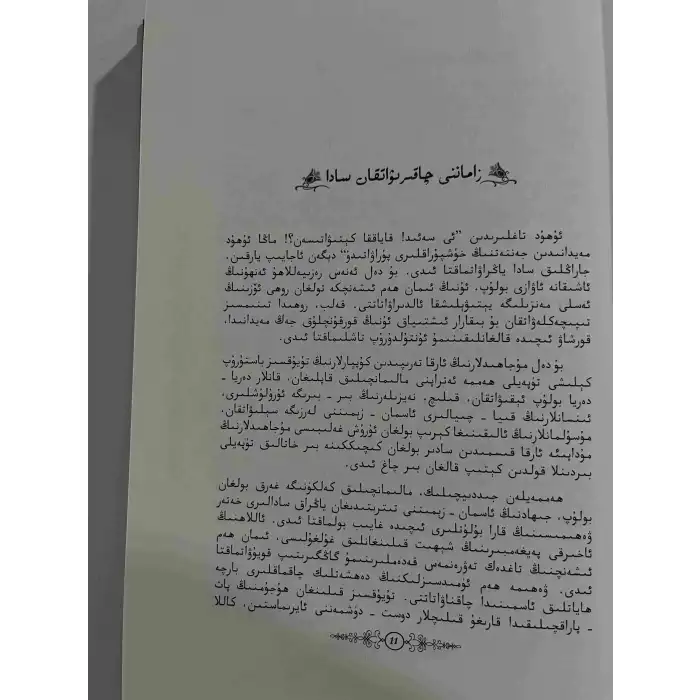 زاماننى چاقىرىۋاتقان سادا
ئۇھۇد تاغلىرىدىن ”ئى سەئىد! قاياققا كېتىۋاتىسەن؟! ماڭا ئۇھۇد
مەيدانىدىن جەننەتنىڭ خۇشپۇراقلىرى پۇراۋاتىدۇ“ دېگەن ئاجايىپ يارقىن،
جاراڭلىق سادا ياڭراۋاتماقتا ئىدى. بۇ دەل ئەنەس رەزىيەللاھۇ ئەنھۇنىڭ
ئاشىقانە ئاۋازى بولۇپ، ئۇنىڭ ئىمان ھەم ئىشەنچكە تولغان روھى ئۆزىنىڭ
ئەسلى مەنزىلىگە يېتىۋېلىشقا ئالدىراۋاتاتتى. قەلب، روھىدا تىنىمسىز
تىپىچەكلەۋاتقان بۇ بىقارار ئىشتىياق ئۇنىڭ قورقۇنچلۇق جەڭ مەيدانىدا،
قورشاۋ ئىچىدە قالغانلىقىنىمۇ ئۇنتۇلدۇرۇپ تاشلىماقتا ئىدى.
بۇ دەل مۇجاھىدلارنىڭ ئارقا تەرىپىدىن كۇپپارلارنىڭ تۇيۇقسىز باستۇرۇپ
كېلىشى تۈپەيلى ھەممە ئەتراپنى مالىمانچىلىق قاپلىغان، قانلار دەريا -
دەريا بولۇپ ئېقىۋاتقان، قىلىچ، نەيزىلەرنىڭ بىر - بىرىگە ئۇرۇلۇشلىرى،
ئىنسانلارنىڭ قىيا - چىيالىرى ئاسمان - زېمىننى لەرزىگە سېلىۋاتقان،
مۇسۇلمانلارنىڭ ئالىقىنىغا كىرىپ بولغان ئۇرۇش غەلىبىسى مۇجاھىدلارنىڭ
مۇداپىئە ئارقا قىسمىدىن سادىر بولغان كىچىككىنە بىر خاتالىق تۈپەيلى
بىردىنلا قولدىن كېتىپ قالغان بىر چاغ ئىدى.
ھەممەيلەن جىددىيچىلىك، مالىمانچىلىق كەلكۈنىگە غەرق بولغان
بولۇپ، جىھادنىڭ ئاسمان - زېمىننى تىترىتىدىغان ياڭراق سادالىرى خەتەر
ۋەھىمىسىنىڭ قارا بۇلۇتلىرى ئىچىدە غايىب بولماقتا ئىدى. ئاللاھنىڭ
ئاخىرقى پەيغەمبىرىنىڭ شېھىت قىلىنغانلىق غۇلغۇلىسى، ئىمان ھەم
ئىشەنچنىڭ تاغدەك تەۋرەنمەس قەدەملىرىنىمۇ گاڭگىرىتىپ قويۇۋاتماقتا
ئىدى. ۋەھىمە ھەم ئۈمىدسىزلىكنىڭ دەھشەتلىك چاقماقلىرى بارچە
ھاياتلىق ئاسمىنىدا چاقناۋاتاتتى. تۇيۇقسىز قىلىنغان ھۇجۇمنىڭ پات
- پاراقچىلىقىدا قارىغۇ قىلىچلار دوست - دۈشمەننى ئايرىماستىن، كاللا
11